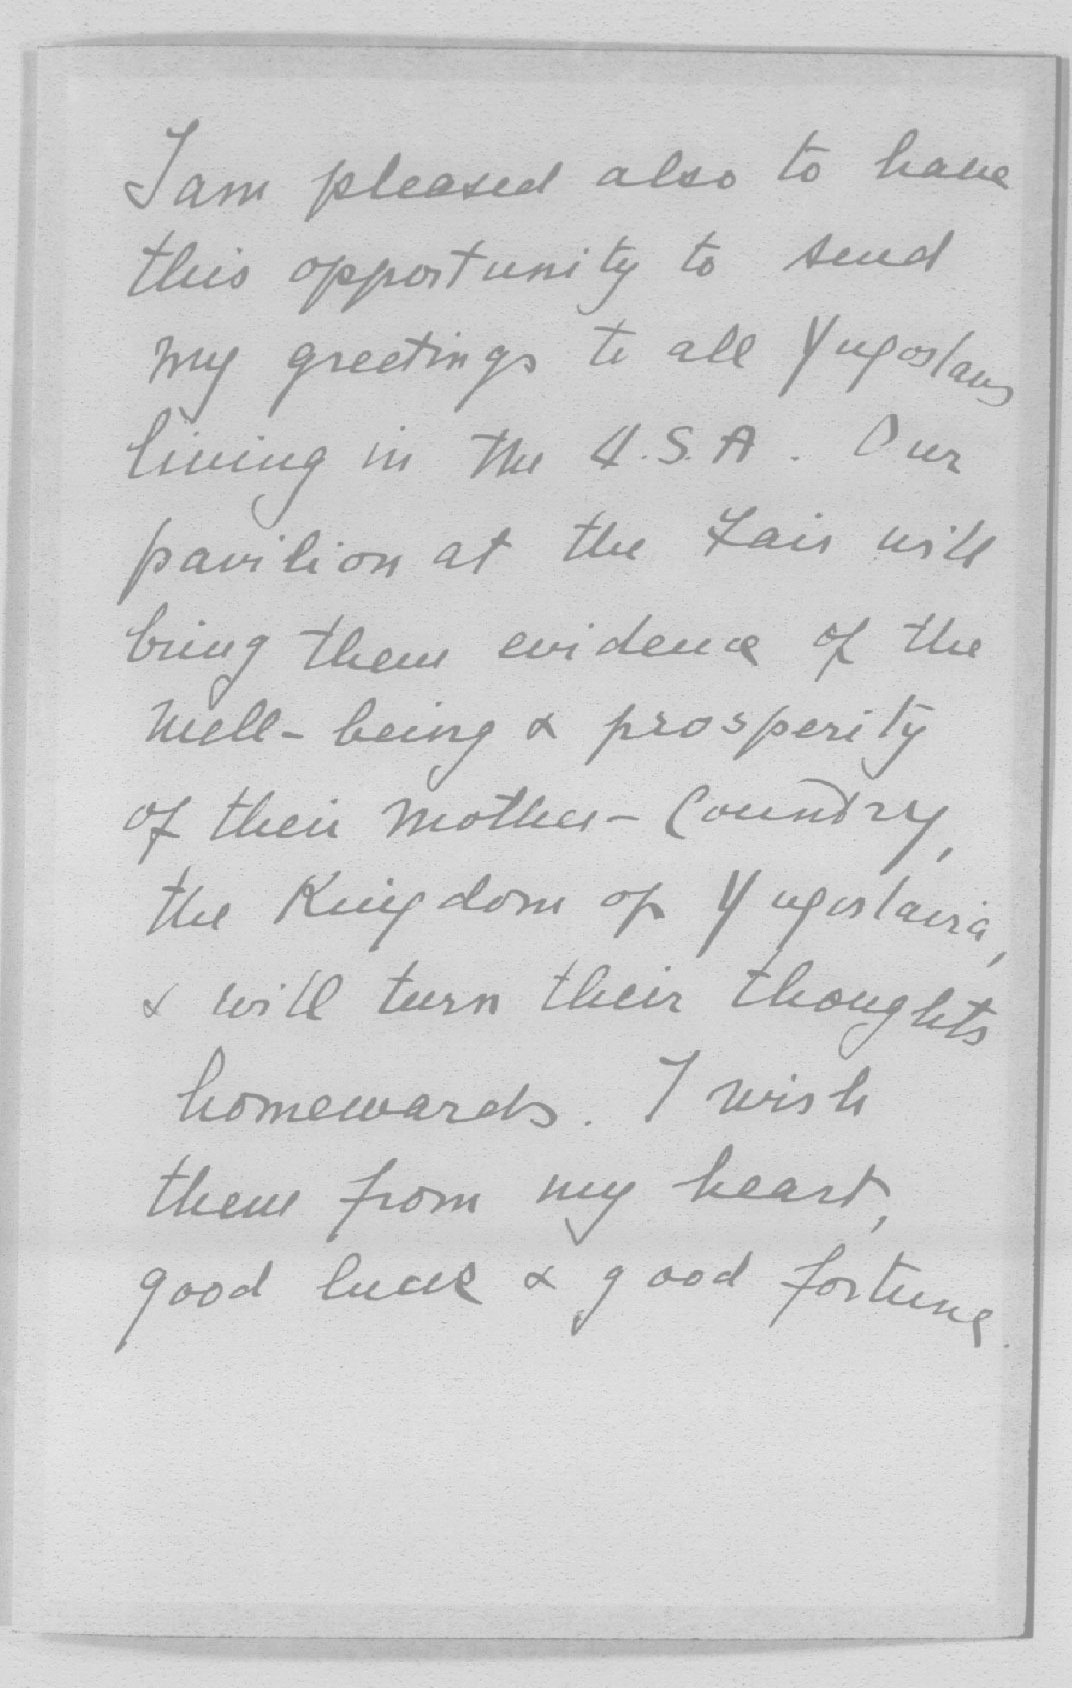 I am pleased also to have
this opportunity to send
my greetings to all Yugoslavs
living in the U.S.A. Our
pavilion at the Fair will
bring them evidence of the
well-being & prosperity
of their mother-Country,
the Kingdom of Yugoslavia,
& will turn their thoughts
homewards. I wish
them from my heart,
good luck & good fortune.